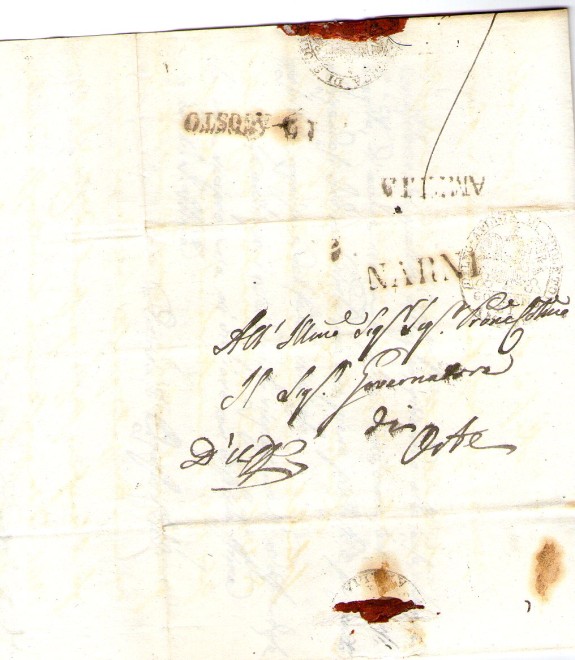 19 AGOSTO
AMELIA
NARNI
All' Illmo Sigr Sigr Prone Colmo
Il Sigr Governatore
di
D'Uffo Orte